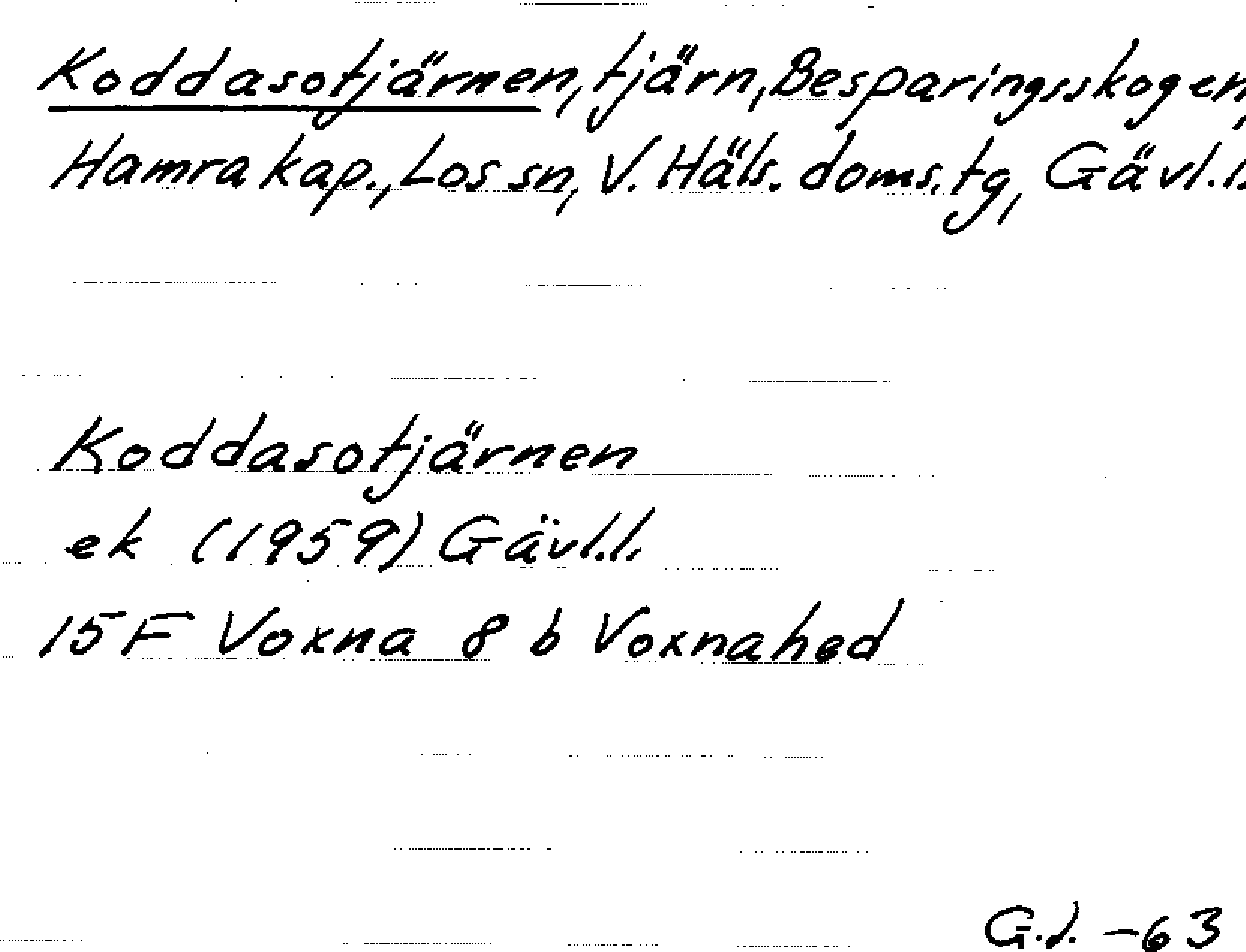 Koddasotjärnen, tjärn, Besparingsskogen,
Hamra kap., Los sn, V. Häls. doms.tg, Gävl.l.
Koddasotjärnen
ek (1959) Gävl.l.
15 F Voxna 8 b Voxnahed
G.J. -63